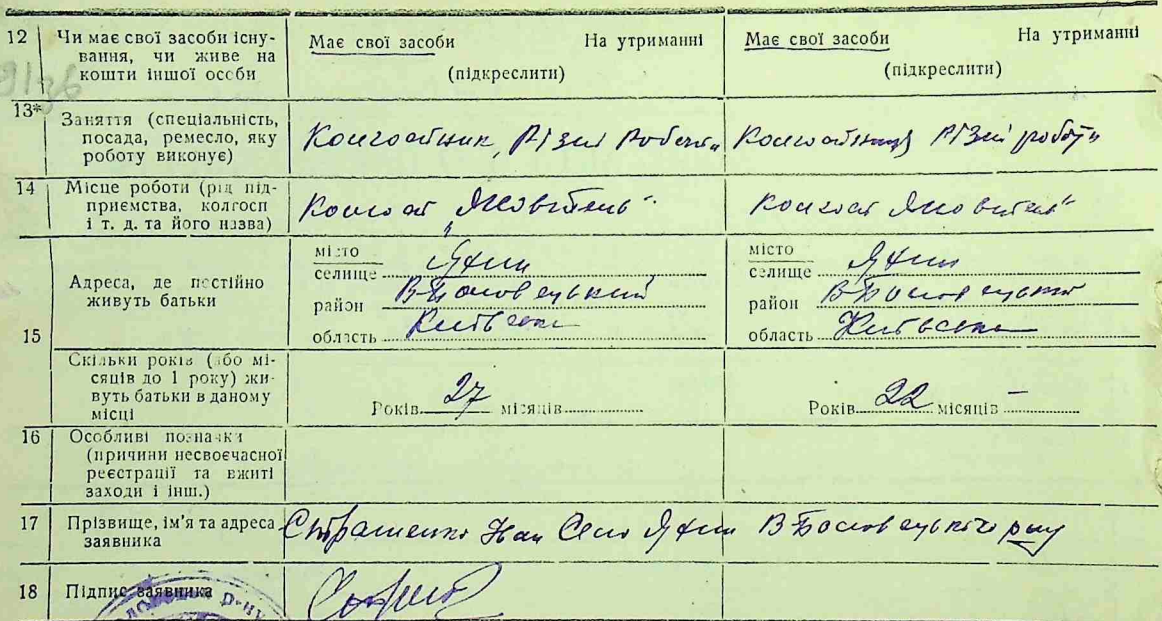 12 Чи має свої засоби існування, чи живе на кошти іншої особи Має свої засоби На утриманні (підкреслити) Має свої засоби На утриманні (підкреслити)
13* Заняття (спеціальність, посада, ремесло, яку роботу виконує) Колгоспник, різні роботи Колгоспниця різні роботи
14 Місце роботи (рід підприємства, колгосп і т. д. та його назва) Колгосп „Жовтень" Колгосп Жовтень"
15 Адреса, де постійно живуть батьки
місто селище Яхни місто селище Яхни
район В-Половецький район В-Половецький
область Київська область Київська
Скільки років (або місяців до 1 року) живуть батьки в даному місці Років 27 місяців Років 22 місяців –
16 Особливі познаки (причини несвоєчасної реєстрації та вжиті заходи і інш.)
17 Прізвище, ім'я та адреса заявника Іван Село В Половецького р-ну
18 Підпис заявника